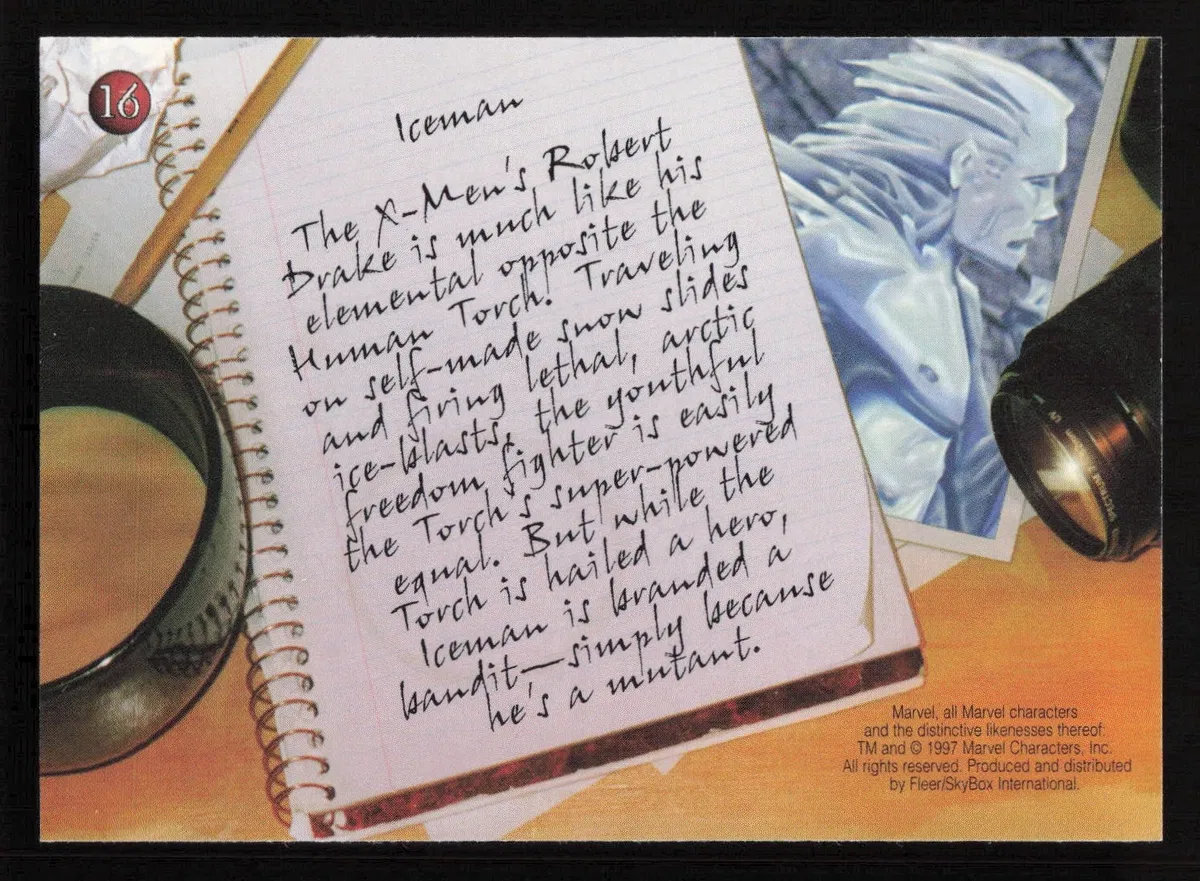 16
Iceman
The X-Men's Robert
Drake is much like his
elemental opposite the
Human Torch! Traveling
on self-made snow slides
and firing lethal, arctic
ice-blasts, the youthful
freedom fighter is easily
the Torch's super-powered
equal. But while the
Torch is hailed a hero,
Iceman is branded a
bandit—simply because
he's a mutant.
Marvel, all Marvel characters
and the distinctive likenesses thereof:
TM and © 1997 Marvel Characters, Inc.
All rights reserved. Produced and distributed
by Fleer/SkyBox International.